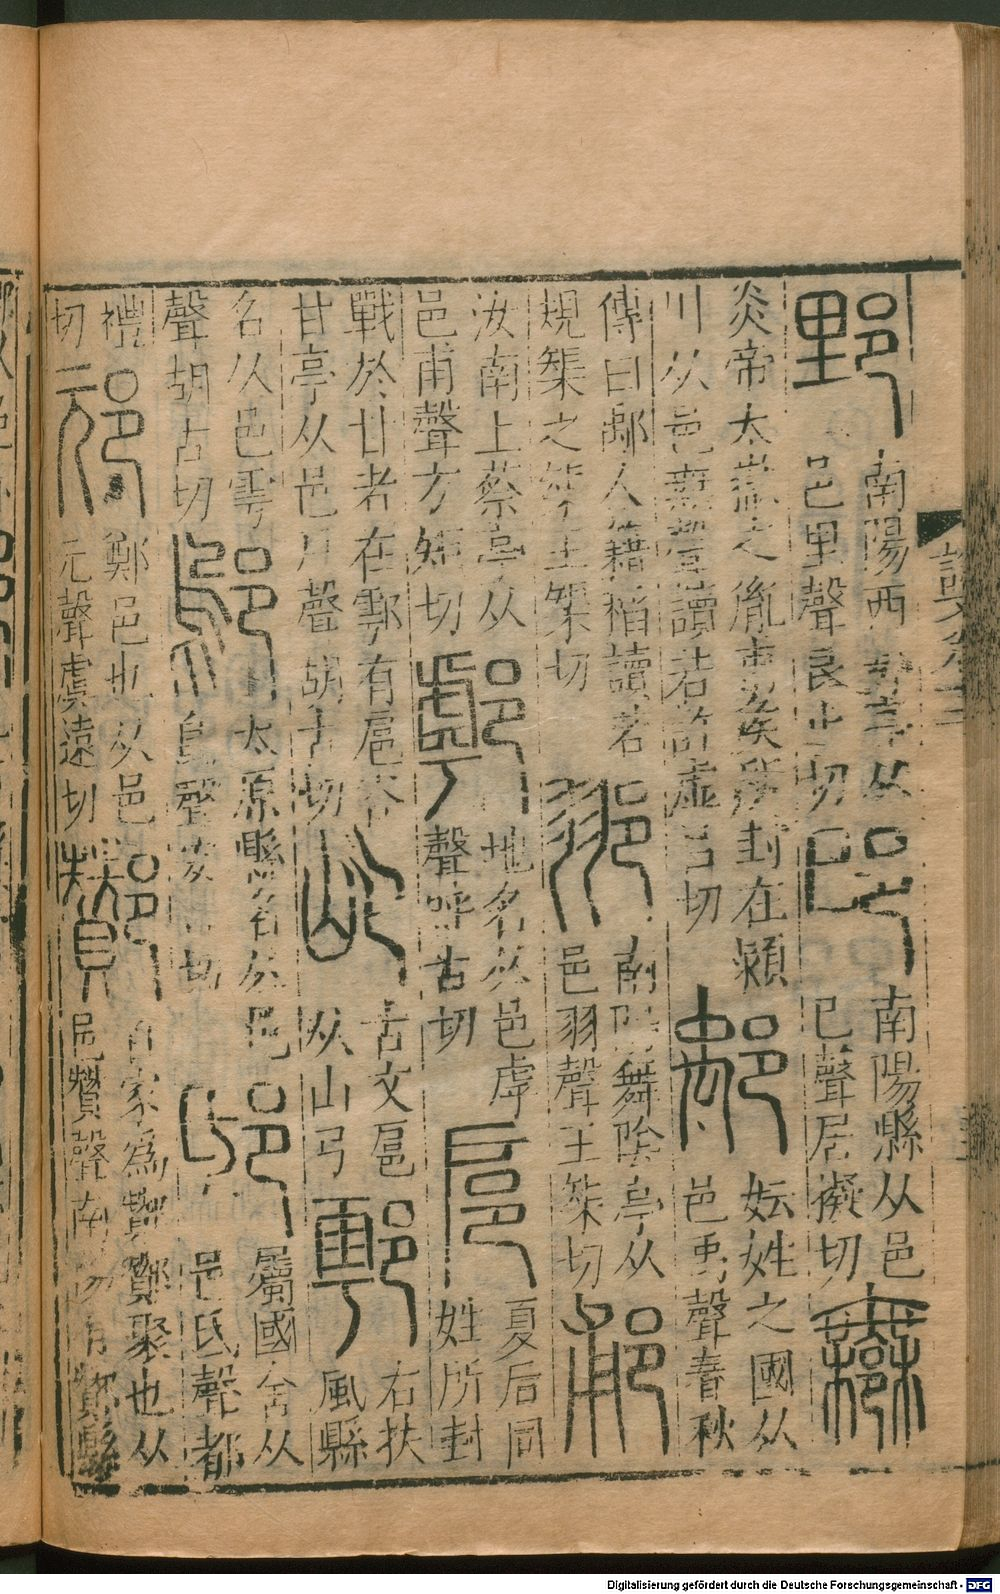 𨛋
南陽西鄂亭从
邑里聲良止切
𨙸
南陽縣从邑
己聲居擬切
𨞦
炎帝太嶽之胤甫矦所封在潁
川从邑無聲讀若許虛呂切
鄅
妘姓之國从
邑禹聲春秋
傳曰鄅人籍稻讀若
規榘之榘王榘切
𨛭
南陽舞陰亭从
邑羽聲王榘切
郙
汝南上蔡亭从
邑甫聲方矩切
𨞙
地名从邑虖
聲呼古切
扈
夏后同
姓所封
戰於甘者在鄠有扈谷
甘亭从邑戶聲胡古切
𡵆
古文扈
从山弓
鄠
右扶
風縣
名从邑雩
聲胡古切
鄔
太原縣名从邑
烏聲安古切
邸
屬國舍从
邑氐聲都
禮
切
邧
鄭邑也从邑
元聲虞遠切
酇
百家為酇酇聚也从
邑贊聲南陽有酇縣
Digitalisierung gefördert durch die Deutsche Forschungsgemeinschaft - DFG